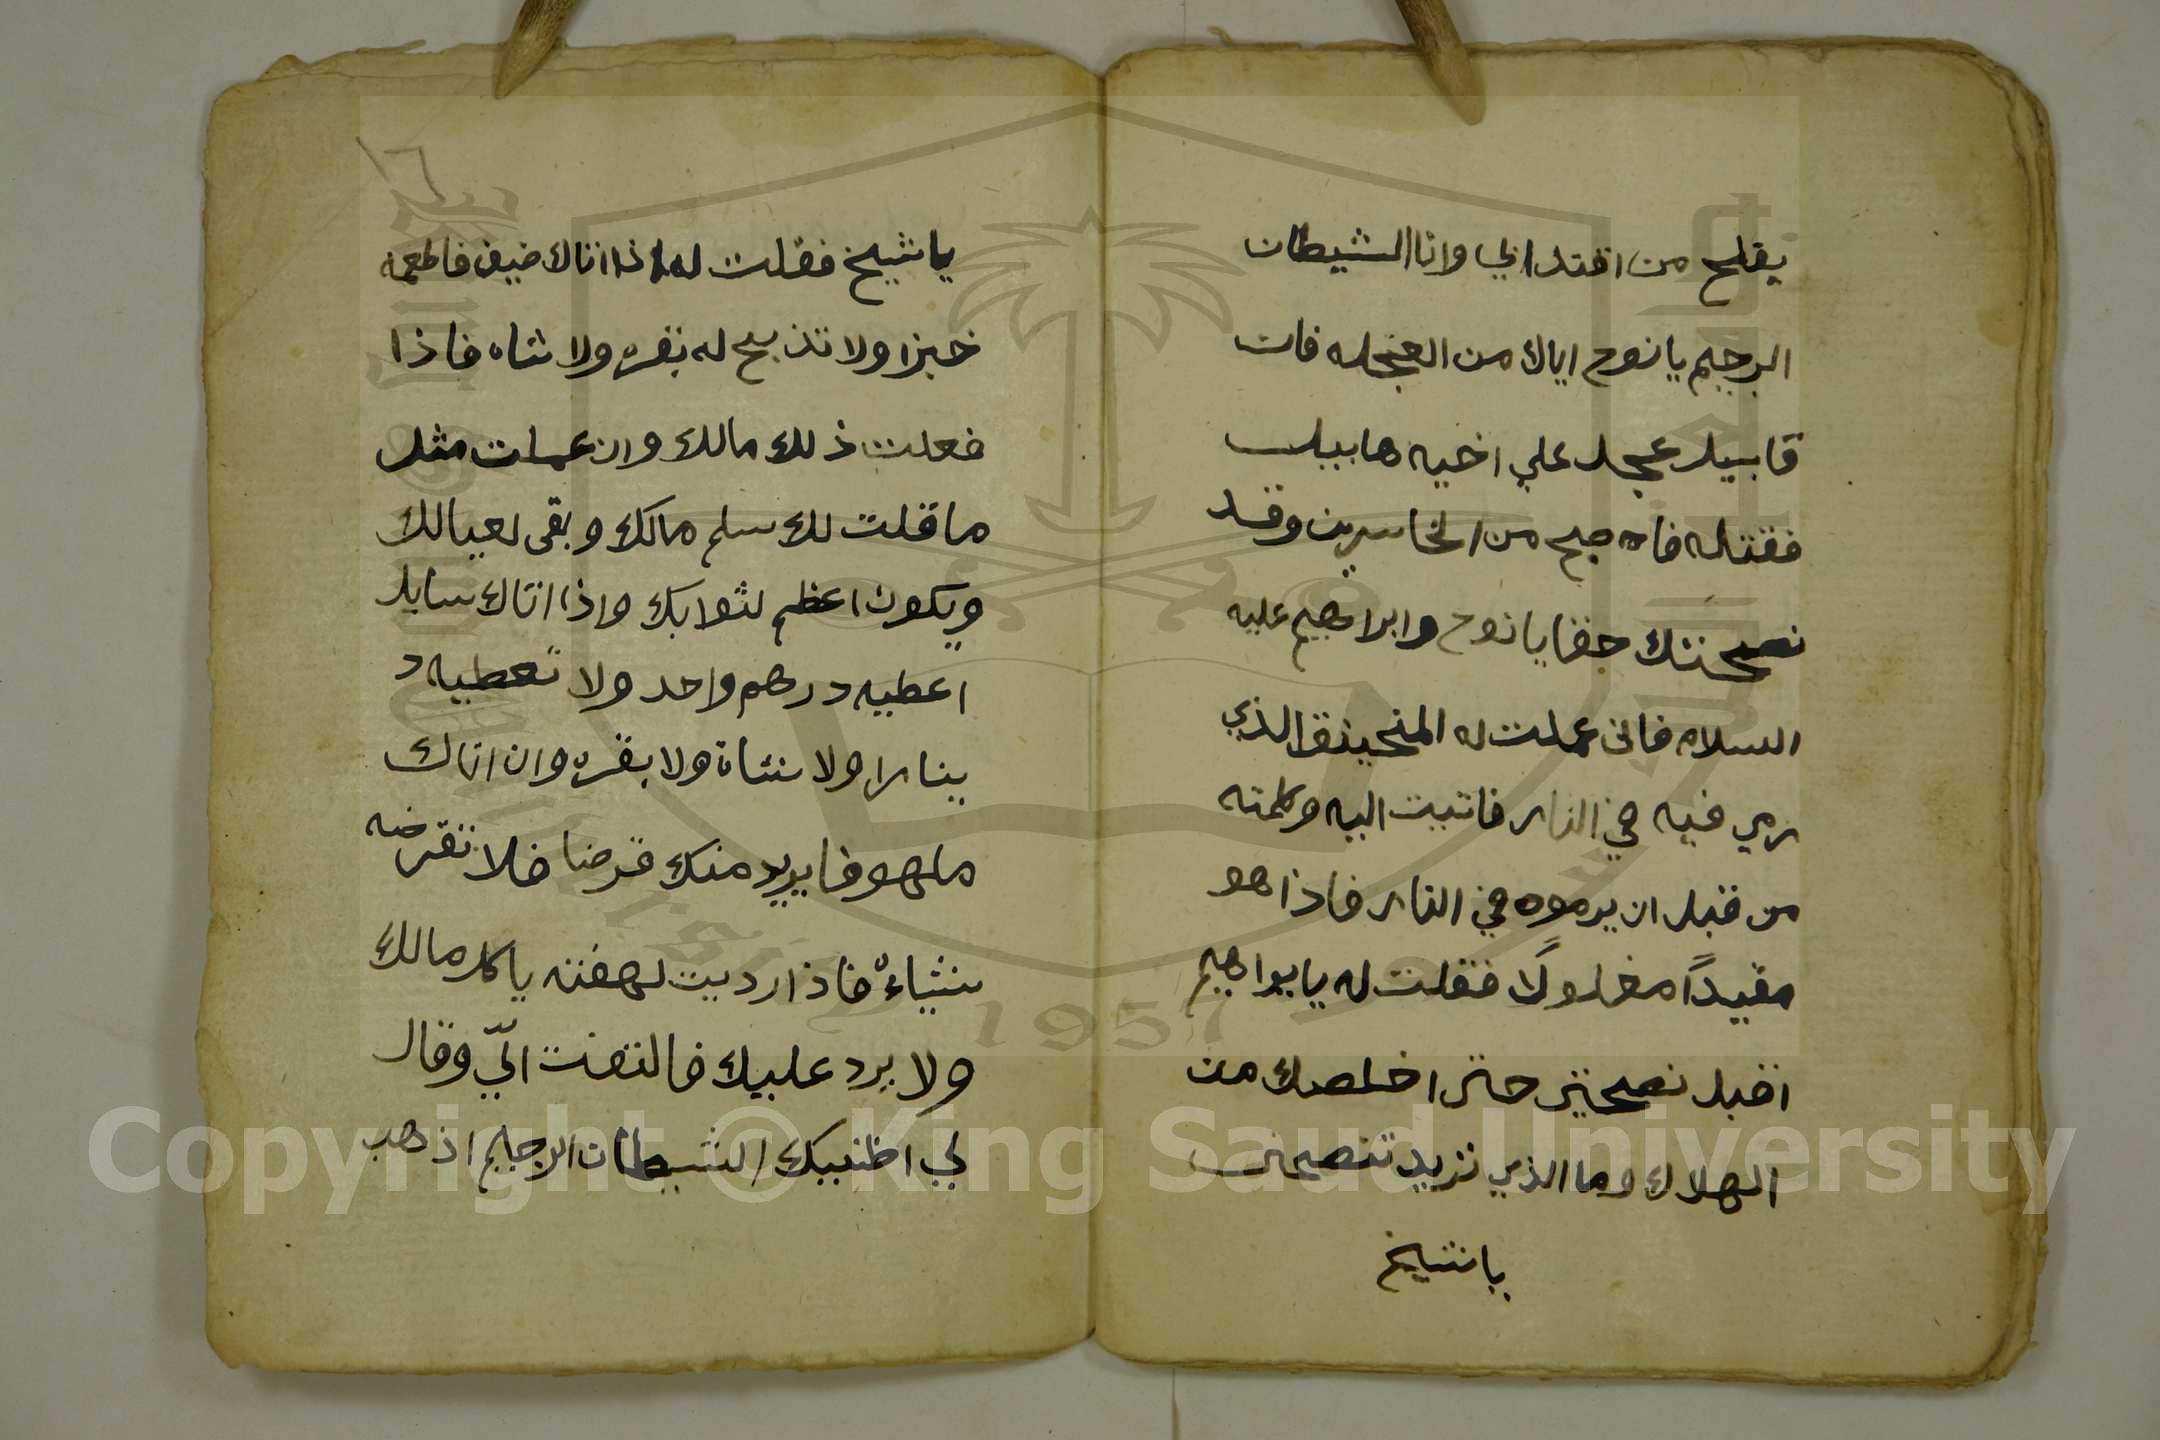 يفلح من اقتدا بي وانا الشيطان
الرجيم يا نوح اياك من العجله فان
قابيل عجل علي اخيه هابيل
فقتله فاصبح من الخاسرين وقد
نصحتك جفا يا نوح وابراهيم عليه
السلام فاني عملت له المنجنيق الذي
رمي فيه في النار فاتيت اليه وكلمته
من قبل ان يرموه في النار فاذا هو
مقيداً مغلولًا فقلت له يا ابراهيم
اقبل نصحتي حتى اخلصك من
الهلاك وما الذي تريد تنصحني
يا شيخ
١٦
يا شيخ فقلت له اذا اتاك ضيف فاطعمه
خبزا ولا تذبح له بقره ولا شاه فاذا
فعلت ذلك مالك وان عملت مثل
ما قلت لك سلم مالك وبقى لعيالك
ويكون اعظم لثوابك واذا اتاك سايل
اعطيه درهم واحد ولا تعطيه د
ينارا ولا شاة ولا بقره وان اتاك
ملهوفا يريد منك قرضا فلا تقرضه
شياءً فاذا رديت لهفته ياكل مالك
ولا يرد عليك فالتفت اليّ وقال
لي اظنيك الشيطان الرجيم اذهب
Copyright © King Saud University
1957